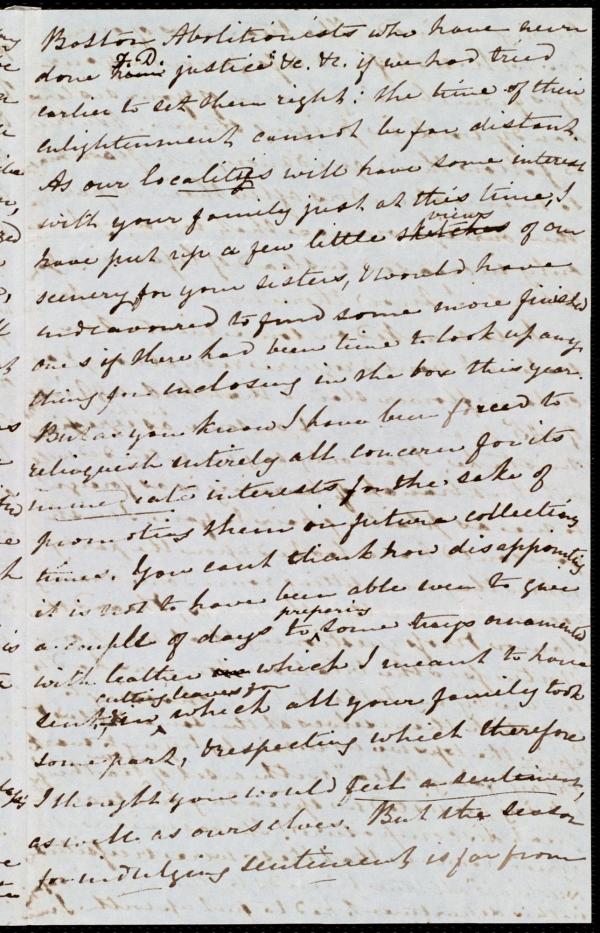 Boston Abolitionists who have never
done F.D. justice &c. &c. if we had tried
earlier to set them right: the time of their
enlightenment cannot be far distant.
As our localities will have some interest
with your family just at this time, I
have put up a few little sketches views of our
scenery for your sisters, & would have
endeavoured to find some more finished
ones if there had been time to look up any
thing for inclosing in the box this year.
But as you know I have been forced to
relinquish entirely all concern for its
immediate interests for the sake of
promoting them in future collecting
times. You can't think how disappointing
it is not to have been able even to give
a couple of days to preparing some trays ornamented
with leather in which I meant to have
sent, cutting leaves for which all your family took
some part, & respecting which therefore
I thought you would feel a sentiment,
as well as ourselves. But the season
for indulging sentiment is far from